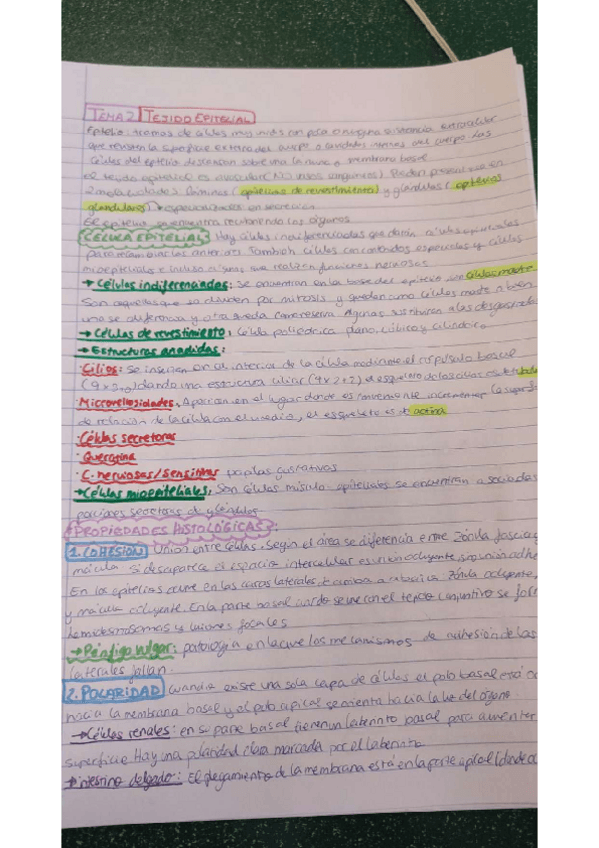 TEMA 2 TEJIDO EPITELIAL
Epitelio: tramas de células muy unidas con poca o ninguna sustancia extracelular
que revisten la superficie externa del cuerpo o cavidades internas del cuerpo. Las
células del epitelio descansan sobre una lámina o membrana basal
el tejido epitelial es avascular (NO vasos sanguíneos). Pueden presentarse en
2 modalidades: láminas (epitelios de revestimiento) y glándulas (epitelios
glandulares) → especializados en secreción
Se epitelio encuentra recubriendo los órganos
CÉLULA EPITELIAL: Hay células indiferenciadas que darán células epiteliales
para reemplazar las anteriores. También células con contenidos especiales y células
mioepiteliales e incluso algunas que realizan funciones nerviosas
→ Células indiferenciadas: Se encuentran en la base del epitelio son células madre
Son aquellas que se dividen por mitosis y quedan como células madre o bien
una se diferencia y otra queda como reserva. Algunas sustituirán a las desgastadas
→ Células de revestimiento: célula poliédrica plano, cúbica y cilíndrica
→ Estructuras añadidas:
· Cilios: Se insertan en el interior de la célula mediante el corpúsculo basal
(9x3+0) dando una estructura ciliar (9x2+2) el esqueleto de los cilios es
· Microvellosidades. Aparecen en el lugar donde es conveniente incrementar la superf
de relación de la célula con el medio, el esqueleto es de actina
· Células secretoras
· Queratina
· C. nerviosas/sensitivas papilas gustativas
→ Células mioepiteliales. Son células músculo-epiteliales se encuentran asociadas
porciones secretoras de glándulas
PROPIEDADES HISTOLÓGICAS:
1. COHESIÓN Unión entre células. Según el área se diferencia entre zónula, fascia y
mácula. Si desaparece el espacio intercelular es unión ocluyente, sino unión adhe
En los epitelios ocurre en las caras laterales, zónula ocluyente,
y mácula ocluyente. En la parte basal cuando se une con el tejido conjuntivo se for
hemidesmosomas y uniones focales
→ Pénfigo vulgar: patología en la que los mecanismos de adhesión de las
laterales fallan.
2. POLARIDAD Cuando existe una sola capa de células el polo basal está
hacia la membrana basal y el polo apical se orienta hacia la luz del órgano.
→ Células renales: en su parte basal tienen un laberinto basal para aumentar
superficie. Hay una polaridad clara marcada por el laberinto
→ intestino delgado: El plegamiento de la membrana está en la parte apical (donde